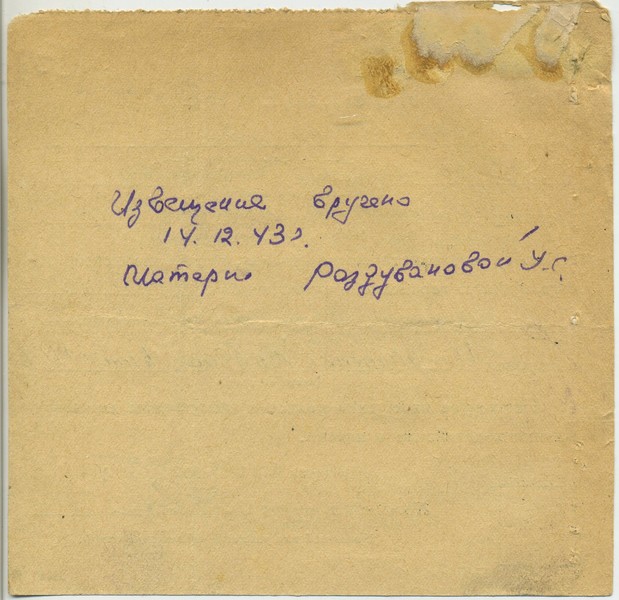 Извещение вручено
14.12.43г.
Матери Раздувановой У.С.